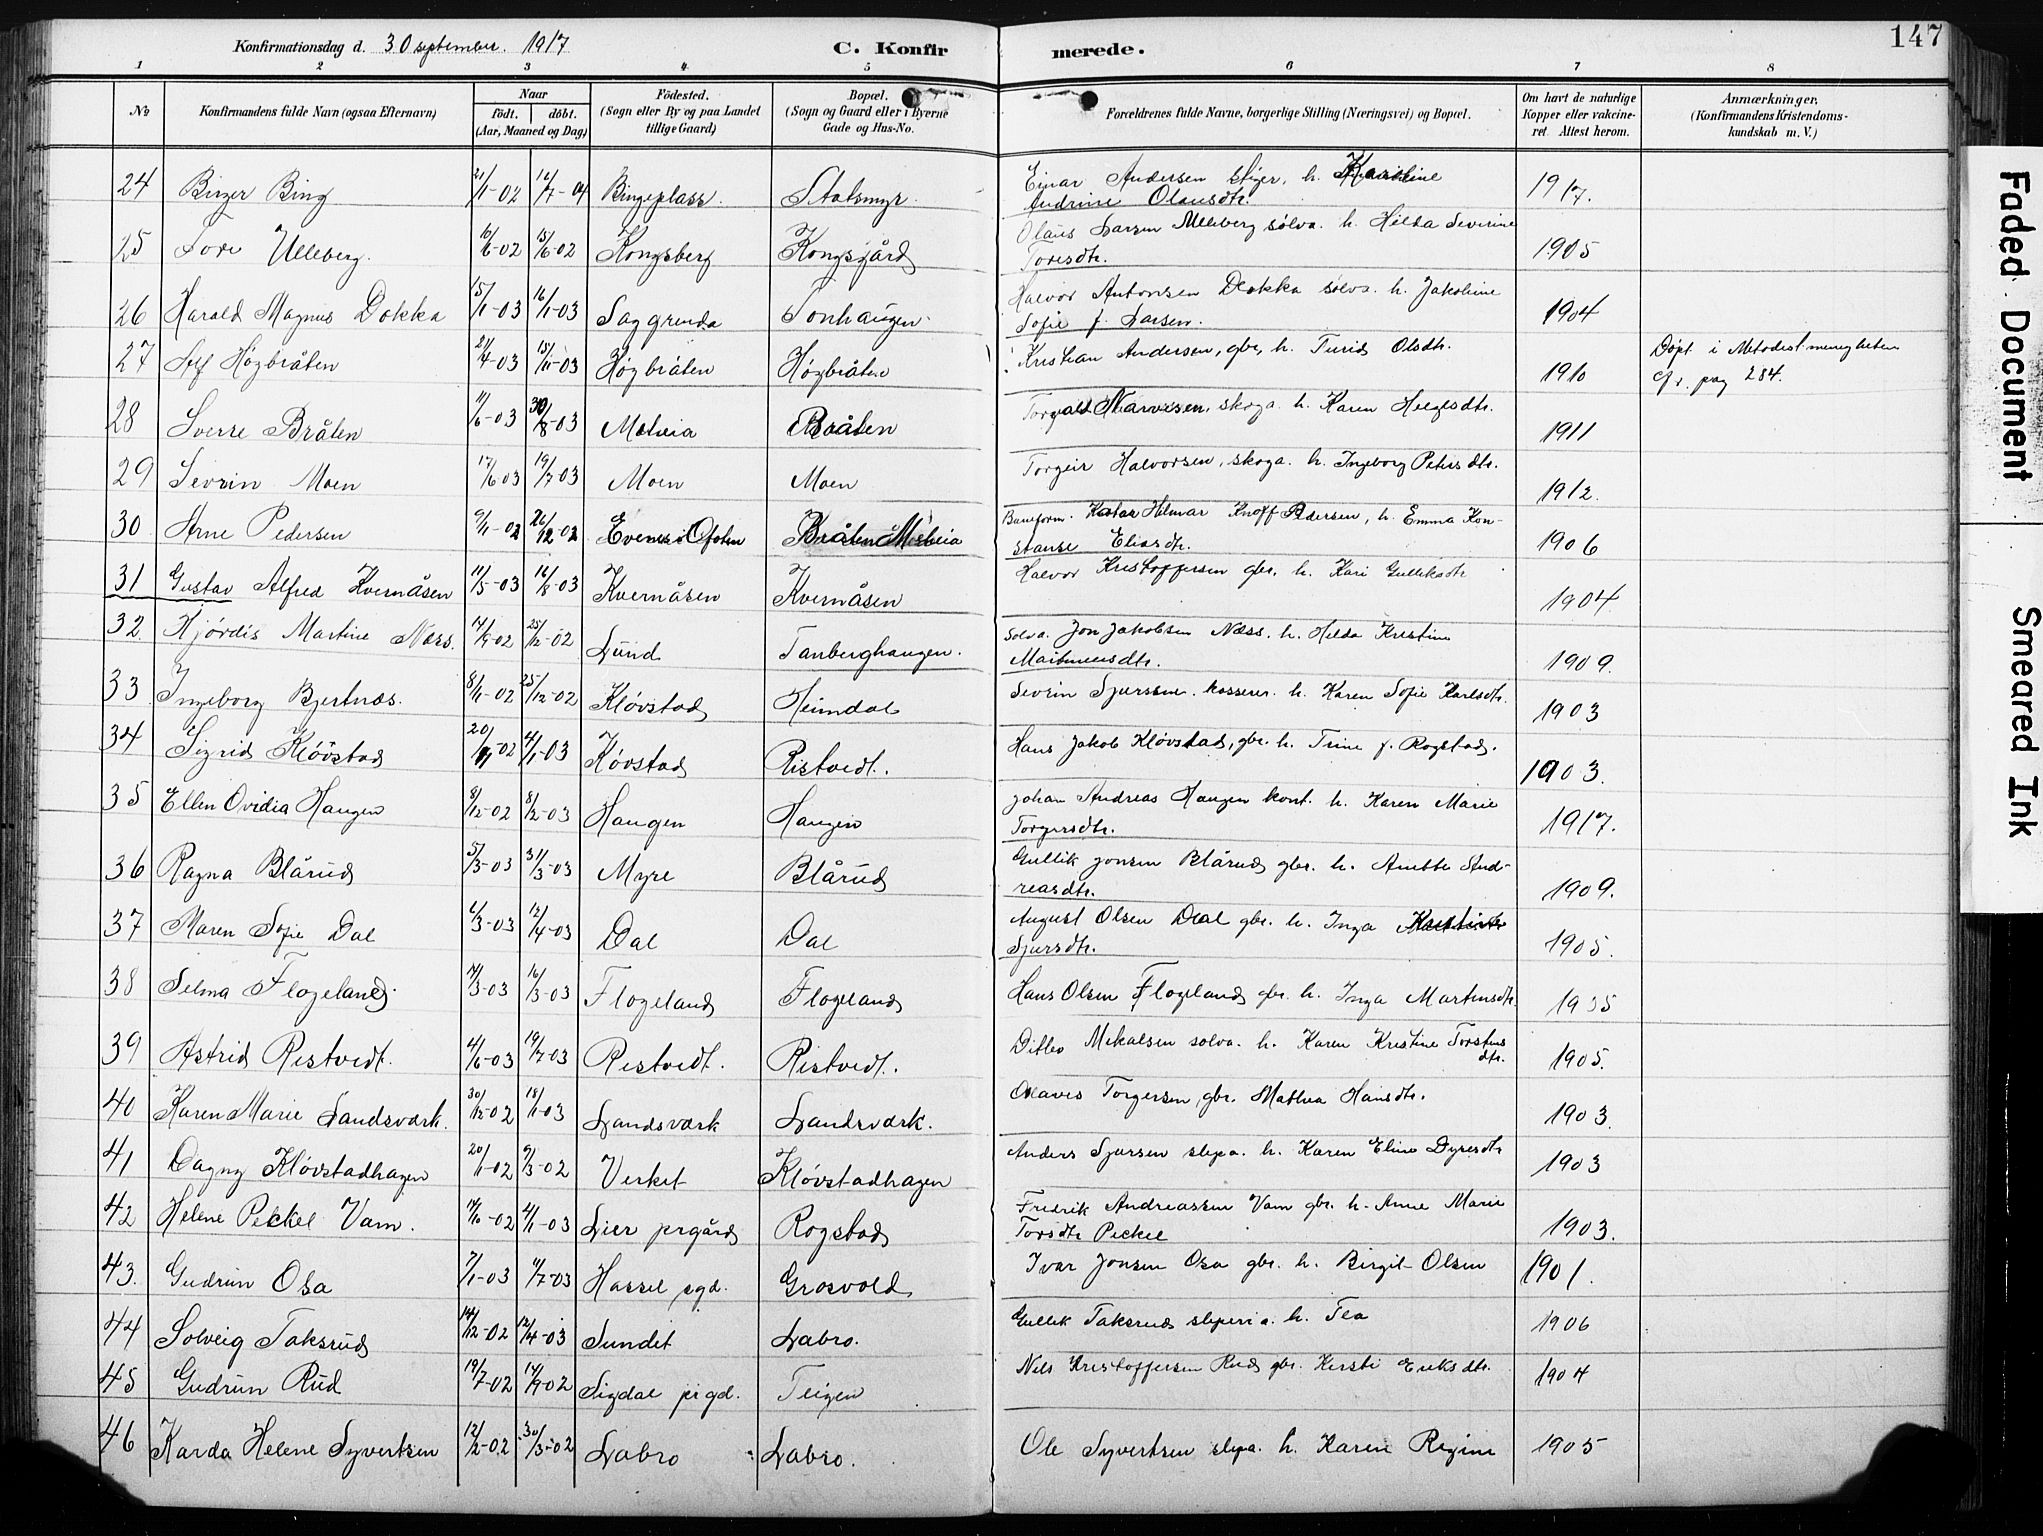 Konfirmationsdag d. 30 september. 1917 C. Konfirmerede. 147
1 2 3 4 5 6 7 8
No Konfirmandens fulde Navn (ogsaa Efternavn) Naar født. døbt. (Aar, Maaned og Dag) Fødested. (Sogn eller By og paa Landet tillige Gaard) Bopæl. (Sogn og Gaard eller i Byerne Gade og Hus-No. Forældrenes fulde Navne, borgerlige Stilling (Næringsvei) og Bopæl. Om havt de naturlige Kopper eller vakcineret. Attest herom. Anmærkninger. (Konfirmandens Kristendomskundskab m. V.)
24 Birger Bing 21/1-02 Bingeplass. Statsmyr. Einar Andersen Stiger, h. Karoline
Andrine Olausdtr. 1917.
25 Tore Ulleberg. 10/6-02 15/6-02 Kongsberg Kongsgård Olaus Larsen Ulleberg sølva. h. Hilda Severine
Toresdtr. 1905
26 Harald Magnus Dokka 15/1-03 16/1-03 Saggrenda Tonhaugen Halvor Antonsen Dokka sølva. h. Jakobine
Sofie f. Larsen. 1904
27 Alf Høgbråten 21/4-03 15/11-03 Høgbråten Høgbråten Kristian Andersen, gbr, h. Turid Olsdtr. 1910 Døpt i Metodistmenigheten
cfr. pag 284.
28 Sverre Bråten 11/6-03 30/8-03 Meheia Bråten Torvald Narvesen, skoga. h. Karen Helgesdtr. 1911
29 Sevrin Moen 17/6 03 19/7 03 Moen Moen Torgeir Halvorsen, skoga. h. Ingeborg Petersdtr. 1912.
30 Arne Pedersen 9/11-02 26/12-02 Evenes i Ofoten Bråten Meheia Baneform. Hilmar Knoff Pedersen, h. Emma Kon-
stanse Eliasdtr. 1906
31 Gustav Alfred Kvernåsen 11/5-03 16/8-03 Kvernåsen Kvernåsen Halvor Kristoffersen gbr. h. Kari Gulliksdtr 1904
32. Hjørdis Martine Næss. 14/9-02 25/12-02 Lund Tanberghaugen. Sølva. Jon Jakobsen Næss. h. Hilda Kristine
Martinusdtr. 1909.
33 Ingeborg Bjertnæs. 8/11-02 25/12-02 Kløvstad Heimdal Sevrin Sjursen. kasserer. h. Karen Sofie Karlsdtr. 1903
34 Sigrid Kløvstad 20/11-02 4/1-03 Køvstad Ristvedt. Hans Jakob Kløvstad, gbr. h. Trine f. Rogstad. 1903.
35 Ellen Ovidia Haugen 8/12-02 8/2-03 Haugen Haugen Johan Andreas Haugen kont. h. Karen Marie
Torgersdtr. 1917.
36 Ragna Blårud 5/3-03 31/3-03 Myre Blårud Gullik Jonsen Blårud gbr. h. Anette And-
reasdtr. 1909.
37 Maren Sofie Dal 6/3-03 12/4-03 Dal Dal August Olsen Dal gbr. h. Inga
Sjursdtr. 1905.
38 Selma Flogeland. 4/3-03 16/3-03 Flogeland Flogeland Hans Olsen Flogeland gbr. h. Inga Martinsdtr. 1905
39 Astrid Ristvedt. 4/6-03 19/7-03 Ristvedt. Ristvedt. Ditlev Mikalsen sølva. h. Karen Kristine Torstens
dtr. 1905.
40 Karen Marie Landsværk. 30/12-02 18/1-03 Landsværk Landsværk. Olaves Torgersen, gbr. Mathea Hansdtr. 1903.
41 Dagny Kløvstadhagen 20/1-02 9/3-02 Verket Kløvstadhagen Anders Sjursen slipa. h. Karen Eline Dyresdtr 1903
42 Helene Peckel Vam. 14/10-02 4/1-03 Lier prgård Rogstad Fredrik Andreassen Vam gbr. h. Anne Marie
Torsdtr Peckel 1903.
43. Gudrun Osa 7/1-03 4/7-03 Hassel sgd. Grosvold Ivar Jonsen Osa gbr. h. Birgit Olsen 1901.
44 Solveig Taksrud 14/12-02 12/4-03 Sundet Labro. Gullik Taksrud sliperia. h. Tea 1906
45 Gudrun Rud 19/7-02 14/9-02 Sigdal prgd. Teigen Nels Kristoffersen Rud gbr. Kersti Eriksdtr. 1904
46 Karda Helene Syvertsen 12/2-02 30/3-02 Labro Labro. Ole Syvertsen slipa. h. Karen Regine 1905
Faded Document Smeared Ink